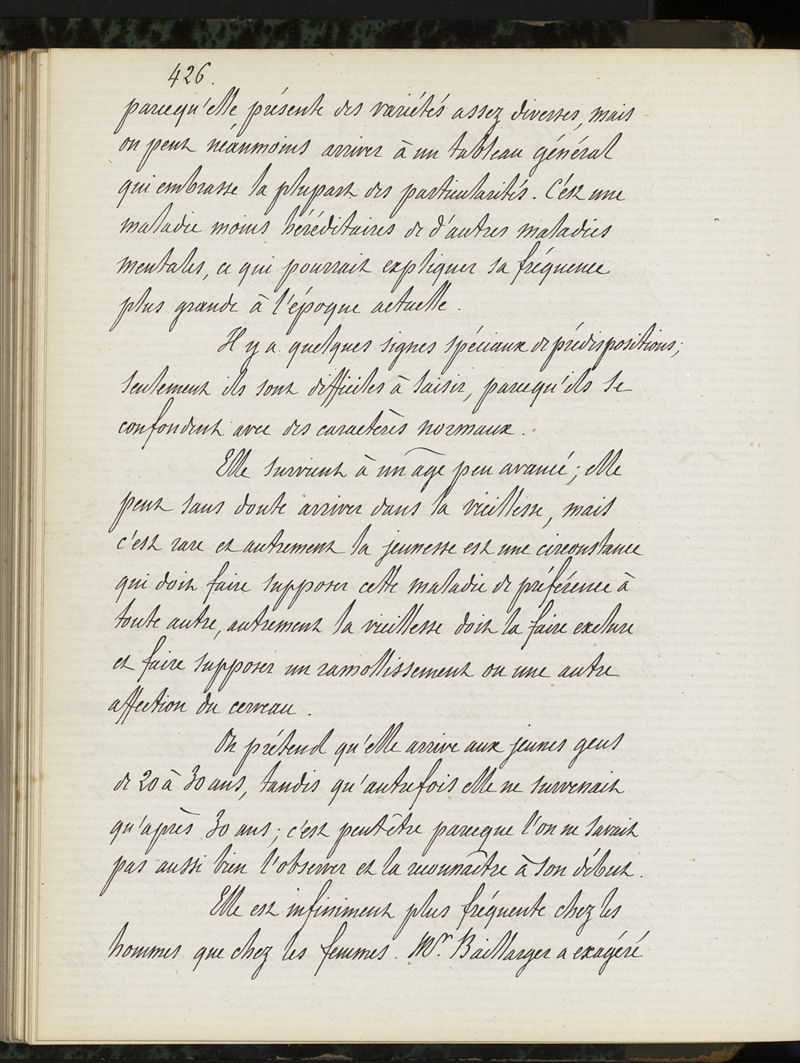 426.
parcequ'elle présente des variétés assez diverses, mais
on peut néanmoins arriver à un tableau général
qui embrasse la plupart des particularités. C'est une
maladie moins héréditaires de d'autres maladies
mentales, ce qui pourrait expliquer sa fréquence
plus grande à l'époque actuelle.
Il y a quelques signes spéciaux de prédispositions;
seulement ils sont difficiles à saisir, parcequ'ils se
confondent avec des caractères normaux.
Elle survient à un âge peu avancé; elle
peut sans doute arriver dans la vieillesse, mais
c'est rare et autrement la jeunesse est une circonstance
qui doit faire supposer cette maladie de préférence à
toute autre, autrement la vieillesse doit la faire exclure
et faire supposer un ramollissement ou une autre
affection du cerveau.
On prétend qu'elle arrive aux jeunes gens
de 20 à 30 ans, tandis qu'autrefois elle ne survenait
qu'après 30 ans; c'est peutêtre parceque l'on ne savait
pas aussi bien l'observer et la reconnaître à son début.
Elle est infiniment plus fréquente chez les
hommes que chez les femmes. Mr. Baillarger a exagéré